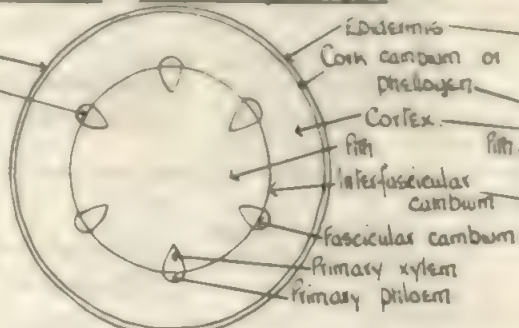 Epidermis
Cork cambium or
phellogen
Cortex
Pith
Pith
Interfascicular
cambium
Fascicular cambium
Primary xylem
Primary phloem